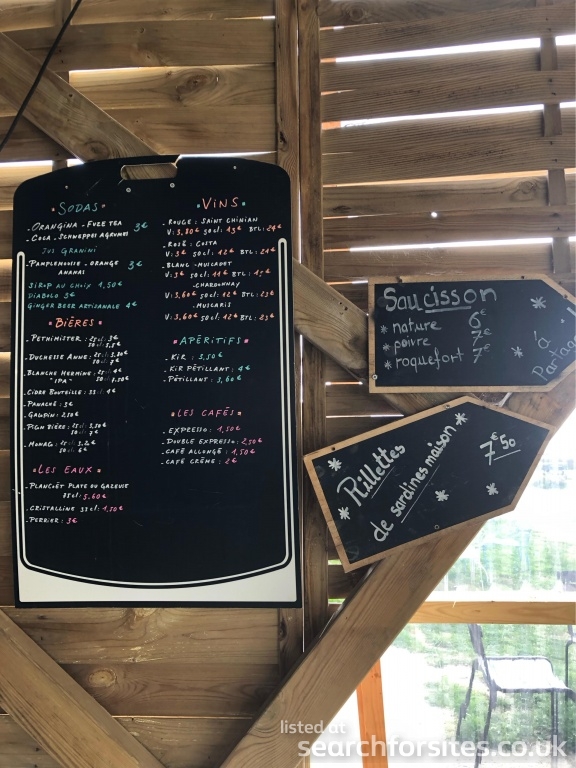 SODAS
- ORANGINA - FUZE TEA 3€
- COLA - SCHWEPPES AGRUMES
JUS GRANINI
- PAMPLEMOUSSE - ORANGE 3€
ANANAS
SIROP AU CHOIX 1,50€
DIABOLO 3€
GINGER BEER ARTISANALE 4€
BIÈRES
- PETHIMISTER : 25cl: 3€
50cl: 5,5€
- DUCHESSE ANNE : 25cl: 3,80€
50cl: 7€
- BLANCHE HERMINE : 25cl: 4€
"IPA" 50cl: 7.50€
- CIDRE BOUTEILLE : 33cl: 4€
- PANACHÉ : 3€
- GALOPIN : 2,50€
- PICON BIÈRE : 25cl: 3,50€
50cl: 7€
- MONACO : 25cl: 3,2€
50cl: 6€
LES EAUX
- PLANCOËT PLATE OU GAZEUSE
5.60€
- CRISTALLINE 33cl: 1,50€
- PERRIER : 3€
VINS
- ROUGE : SAINT CHINIAN
V: 3,80€ 50cl: 13€ BTL: 24€
- ROSÉ : COSTA
V: 3€ 50cl: 12€ BTL: 21€
- BLANC - MUSCADET
V: 3€ 50cl: 11€ BTL:
- CHARDONNAY
V: 3,60€ 50cl: 12€ BTL: 23€
- MUSCARIS
V: 3,60€ 50cl: 12€ BTL: 23€
APÉRITIFS
- KIR : 3,50€
- KIR PÉTILLANT : 4€
- PÉTILLANT : 3,60€
LES CAFÉS
- EXPRESSO : 1,50€
- DOUBLE EXPRESSO : 2,50€
- CAFÉ ALLONGÉ : 1,50€
- CAFÉ CRÈME : 2€
Saucisson
* nature 6€
* poivre 7€
* roquefort 7€
à
Partag
Rillettes
de sardines maison
7€50
listed at
searchforsites.co.uk